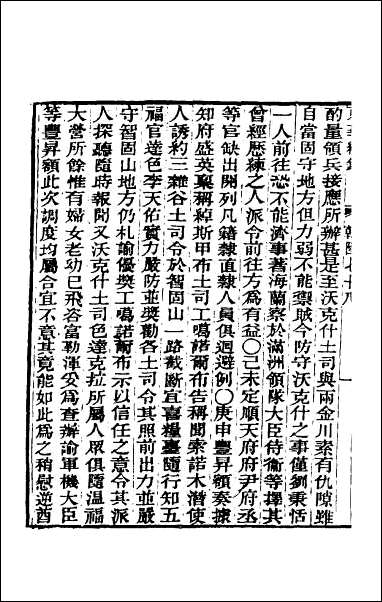 酌量領兵接應所辦甚是至沃克什土司與兩金川素有仇隙雖
自當固守地方但力弱不能禦賊今防守沃克什之事僅劉秉恬
一人前往恐不能濟事著海蘭察於滿洲領隊大臣侍衞等擇其
曾經歷練之人派令前往方為有益〇己未定順天府府尹府丞
等官缺出開列凡籍隸直隸人員俱迴避例〇庚申豐昇額奏據
知府盛英稟稱綽斯甲布土司工噶諾爾布告稱聞索諾木潛使
人誘約三雜谷土司令於智固山一路截斷宜喜糧臺隨行知五
福官達色李天佑實力嚴防並獎勸各土司令其照前出力並嚴
守智固山地方仍札諭優獎工噶諾爾布示以信任之意令其派
人探聽隨時報聞又沃克什土司色達克拉所屬人眾俱隨溫福
大營所餘惟有婦女老幼已飛咨富勒渾妥為查辦諭軍機大臣
等豐昇額此次調度均屬合宜不意其竟能如此為之稍慰逆酋